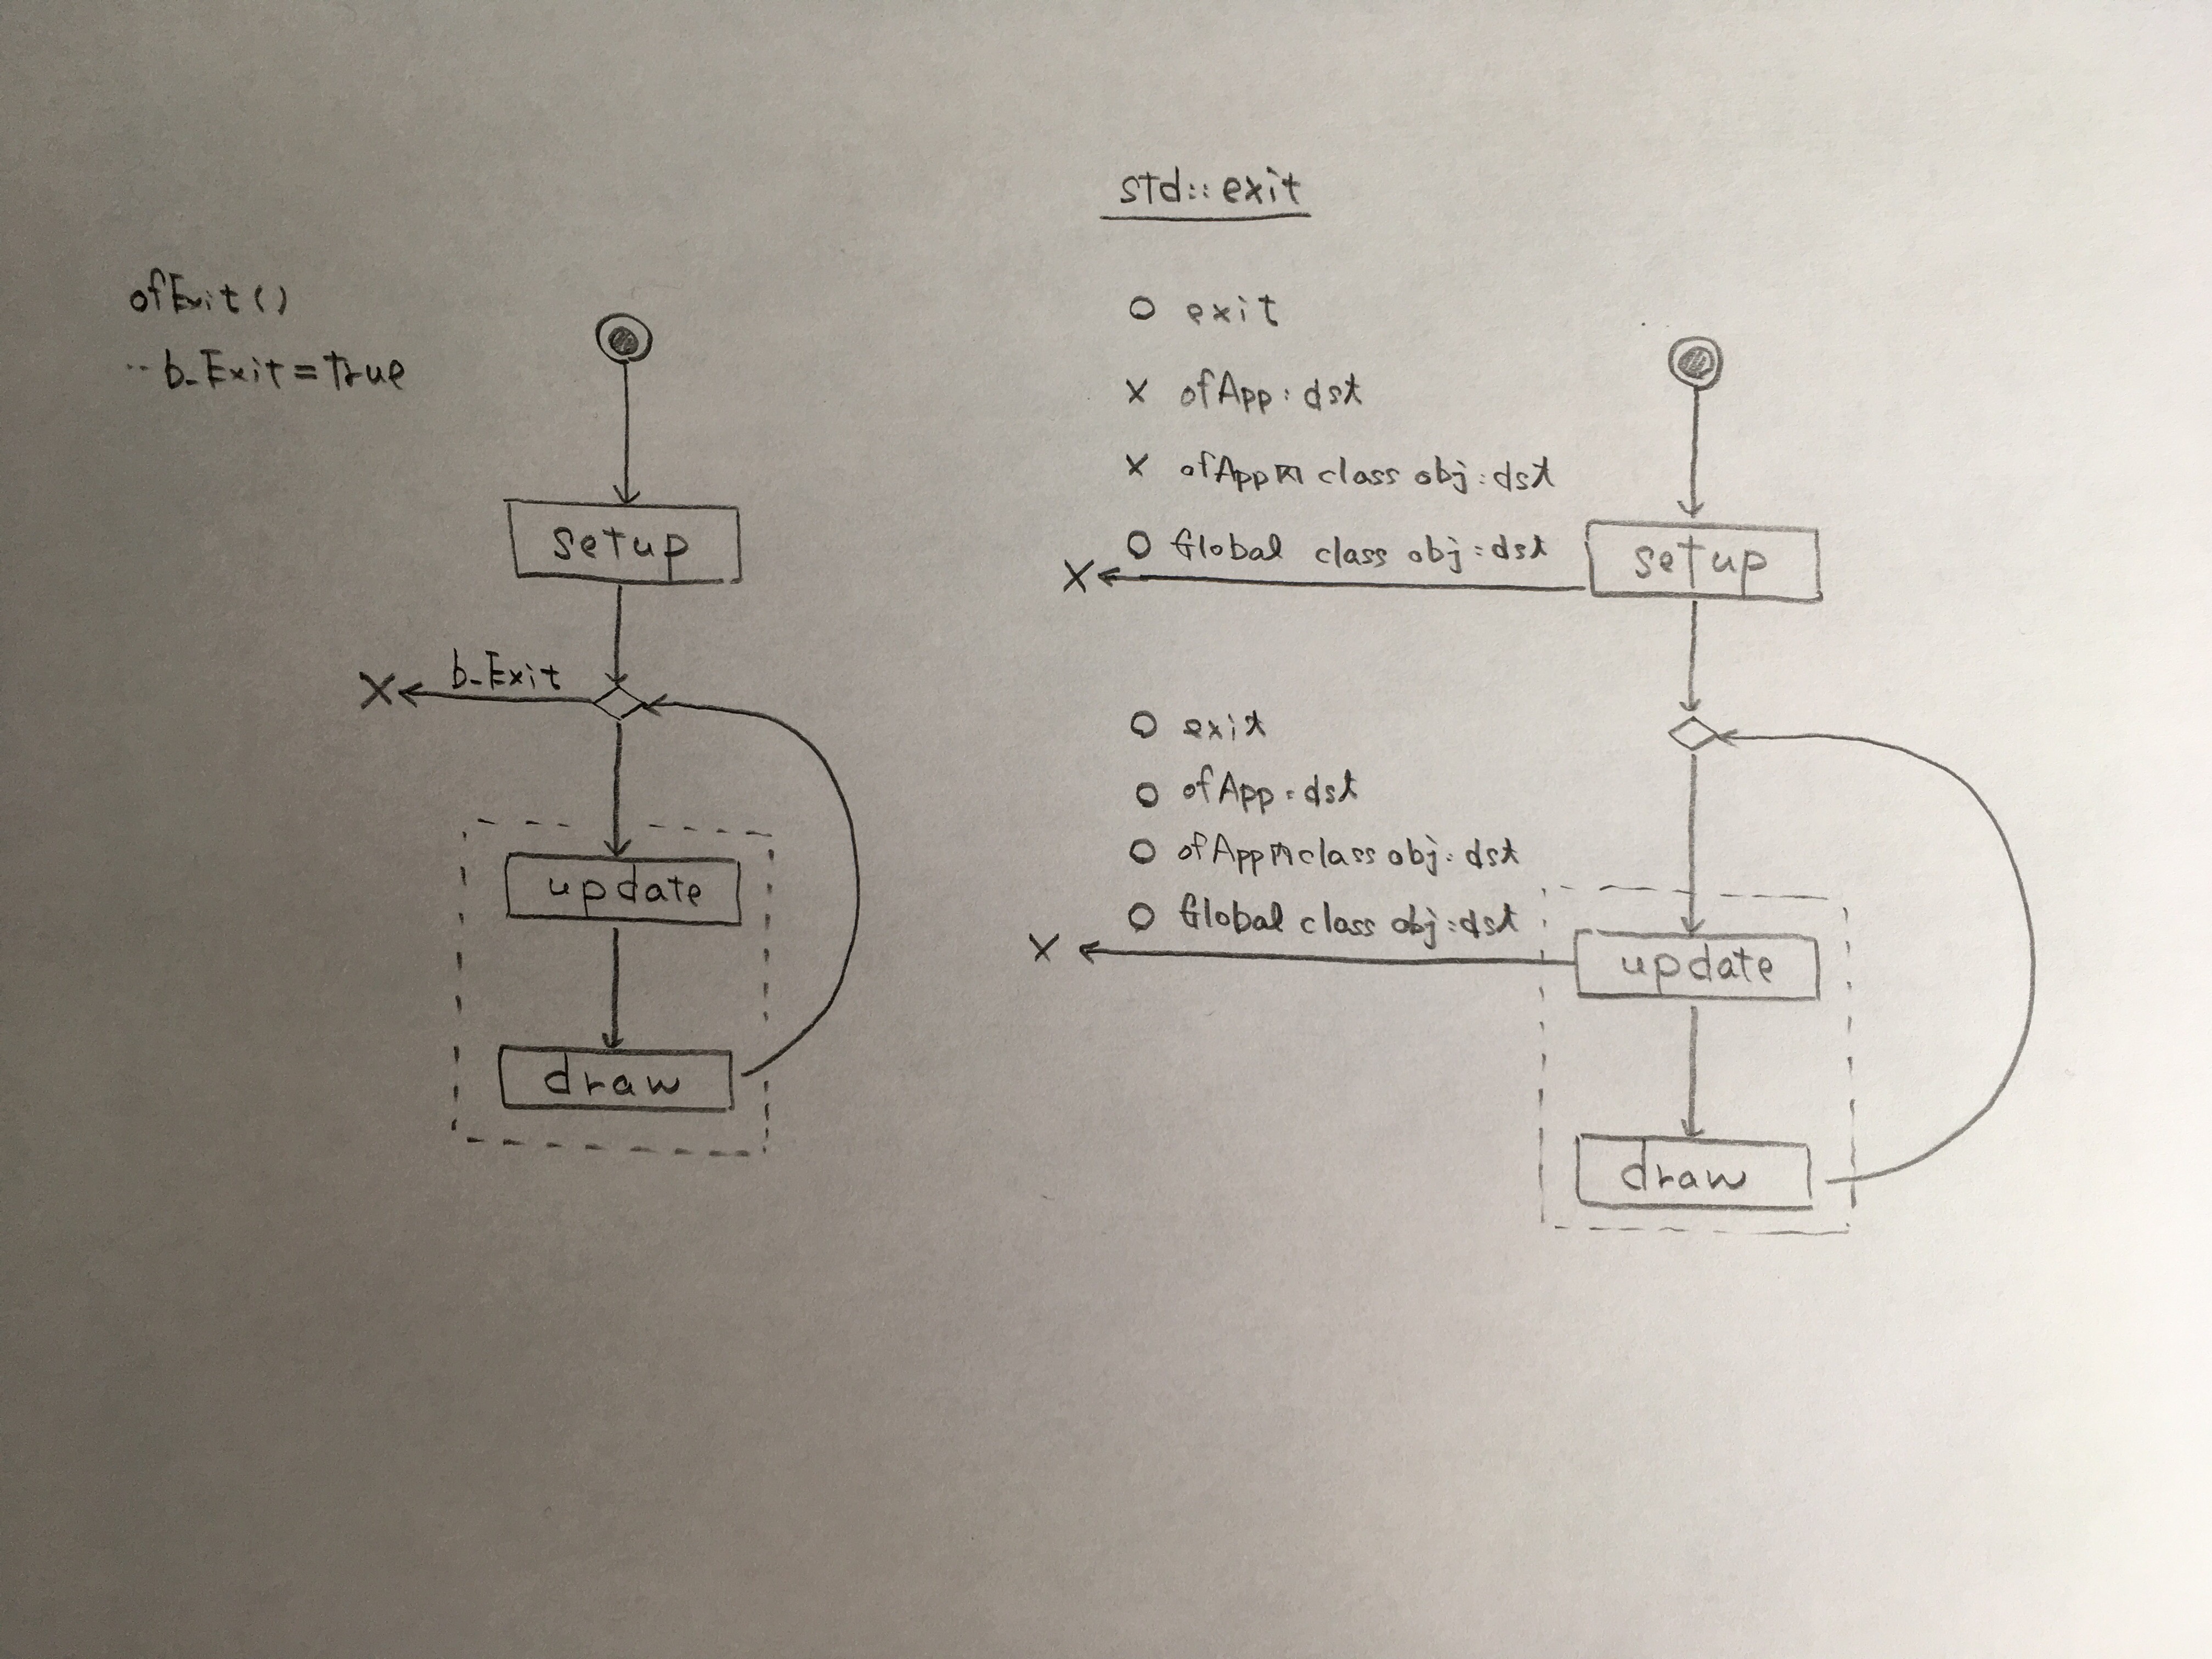 ofExit()
‥b_Exit=true
setup
b_Exit
update
draw
std::exit
○ exit
× ofApp:dst
× ofApp内 class obj:dst
○ Global class obj:dst
×
setup
○ exit
○ ofApp:dst
○ ofApp内class obj:dst
○ Global class obj:dst
×
update
draw